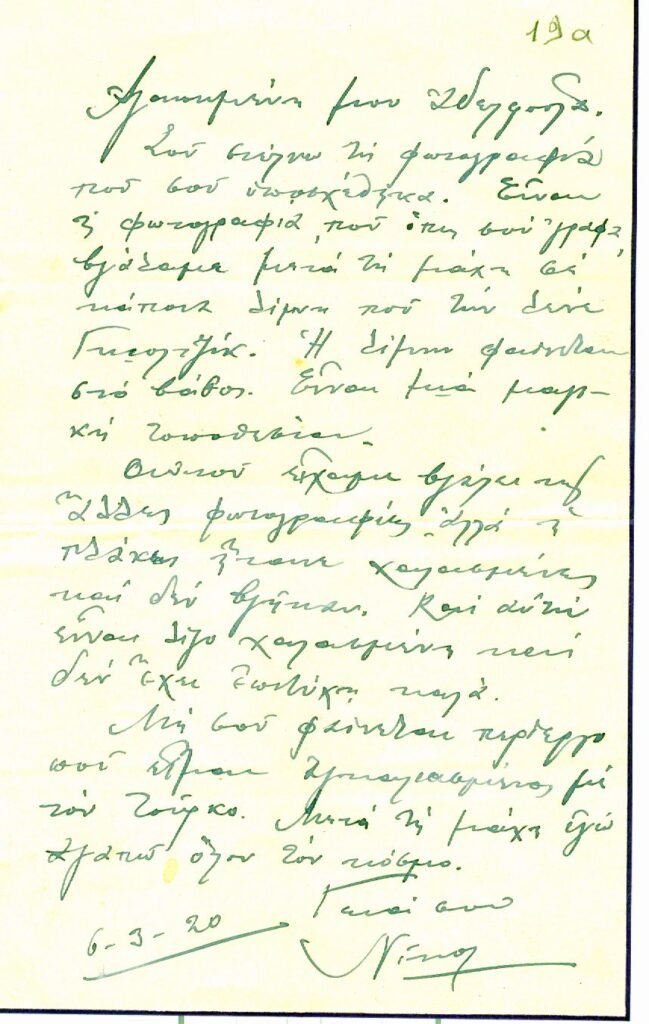 19a
Ἀγαπημένη μου Ἀδελφούλα.
Σοῦ στέλνω τὴ φωτογραφιά
ποὺ σοῦ ὑποσχέθηκα. Εἶναι
ἡ φωτογραφιά ποὺ ὅπως σοῦ 'γραφα,
βγάλαμε μετά τὴ μάχη σὲ
κάποια λίμνη ποὺ τὴν λένε
Γκιολτζίκ. Ἡ λίμνη φαίνεται
στὸ βάθος. Εἶναι μιὰ μαγι-
κὴ τοποθεσία.
εἴχαμε βγάλει καὶ
ἄλλες φωτογραφίες ἀλλά ᾑ
πλάκες ἤτανε χαλασμένες
καὶ δὲν βγῆκαν. Καὶ αὐτὴ
εἶναι λίγο χαλασμένη καὶ
δὲν ἔχει ἐπιτύχη καλά.
Μὴ σοῦ φαίνεται περίεργο
ποὺ εἶμαι ἀγκαλιασμένος μὲ
τὸν Τοῦρκο. Μετά τὴ μάχη ἐγὼ
ἀγαπῶ ὅλον τὸν κόσμο.
Γειά σου
6-3-20
Νίκος